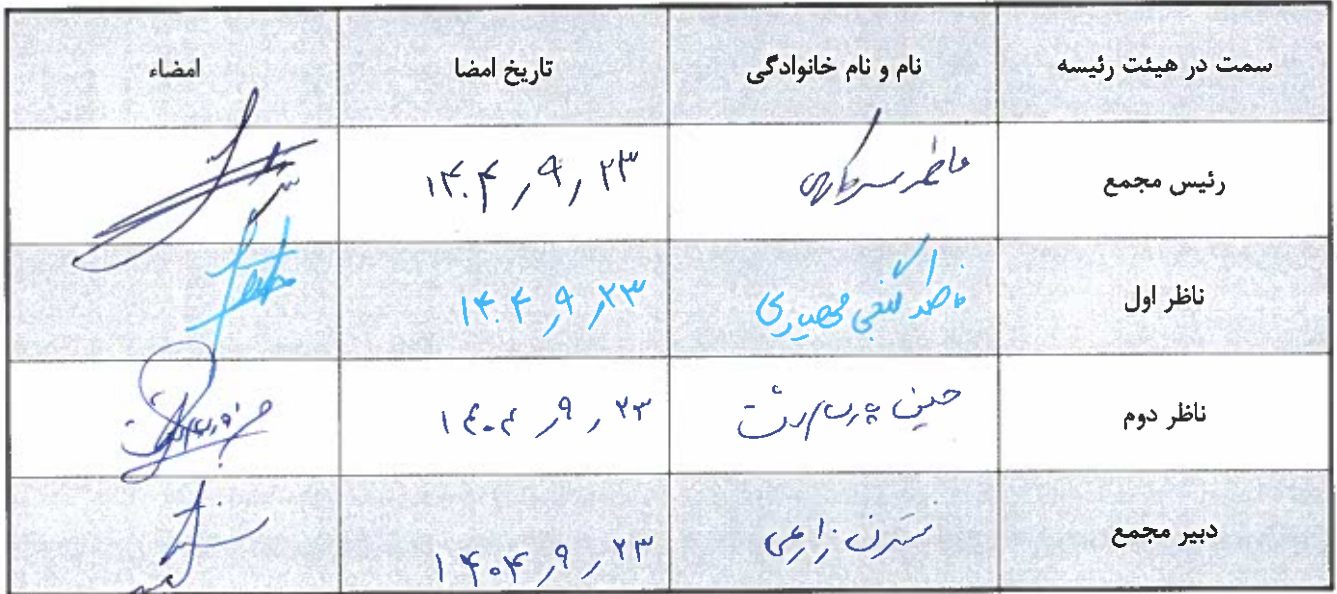 سمت در هیئت رئیسه نام و نام خانوادگی تاریخ امضا امضاء
رئیس مجمع فاطمه ۱۴۰۴,۹,۲۳
ناظر اول فاطمه گنجی ۱۴۰۴,۹,۲۳
ناظر دوم ۱۴۰۴,۹,۲۳
دبیر مجمع نسترن زارعی ۱۴۰۴,۹,۲۳